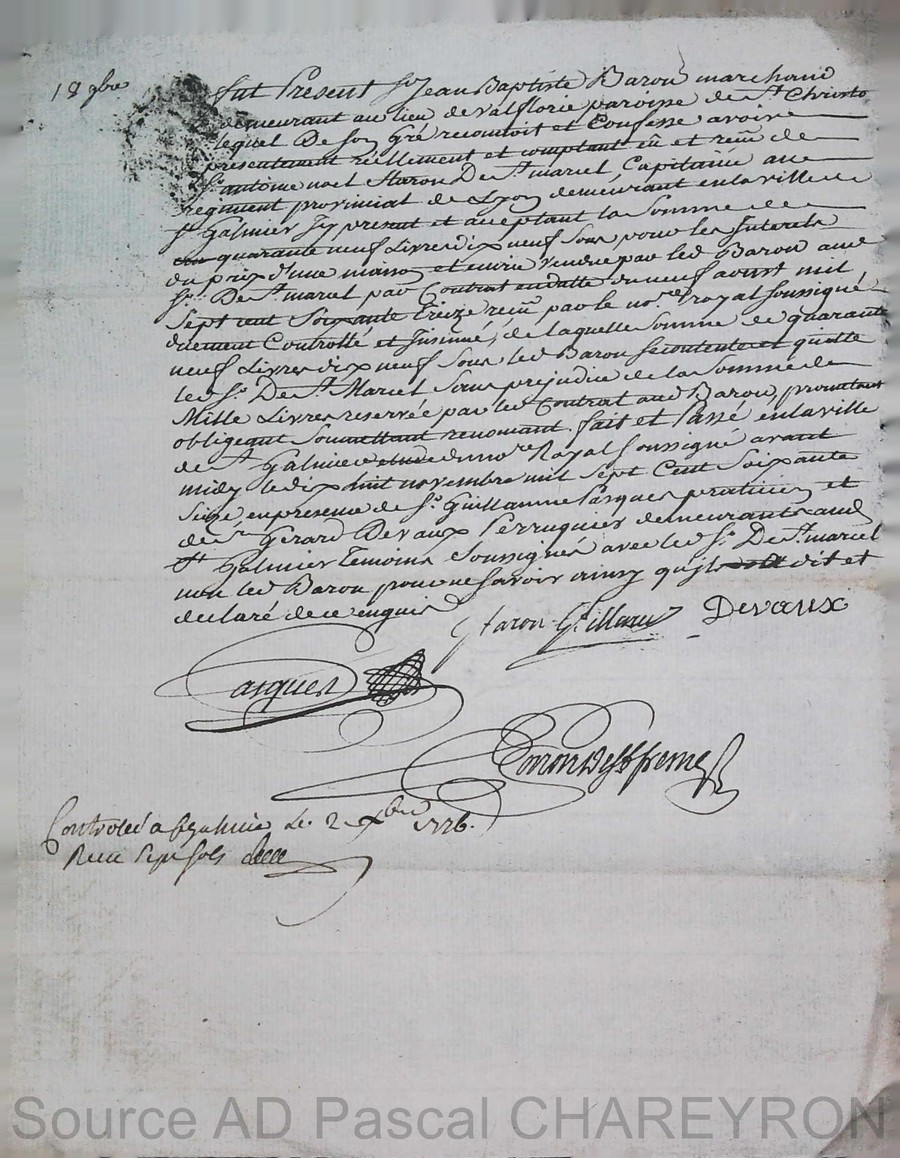 18 9bre
fut Present Sr Jean Baptiste Baron marchand
demeurant au lieu de Valflorie paroisse de St Christo
lequel De Son Gré reconnoit et Confesse avoir
presentement réellement et comptant eü et reçu de
Sr antoine noel Staron De St marcel, Capitaine au
regiment provincial de Lyon demeurant en la ville de
St Galmier Icy present et acceptant la Somme de
quarante neuf Livres dix neuf Sous pour les Interets
du prix d'une maison et ecurie vendue par led Baron aud
Sr De St marcel par Contrat en datte du neuf aoust mil
Sept cent Soixante treize reçu par le nore royal Soussigné
duement Controllé et Insinué, de laquelle Somme de quarante
neuf Livres dix neuf Sous led Baron se contente et quitte
led Sr De St Marcel Sans prejudice de la Somme de
Mille Livres reservée par led Contrat aud Baron, promettant
obligeant Soumettant renonçant. fait et Passé en la ville
de St Galmier etude du nore Royal Soussigné avant
midy le dix huit novembre mil Sept Cent Soixante
Seize, en presence de Sr Guillaume Pasquet praticien et
de Sr Gerard Devaux Perruquier demeurants aud
St Galmier temoins Soussignés avec led Sr De St marcel
non led Baron pour ne savoir ainsy qu'il dit et
declaré de ce enquis
Staron Devaux
Pasquet

Controlé a St galmier Le 2 Xbre 1776.
Recu Sept Sols
Source AD Pascal CHAREYRON